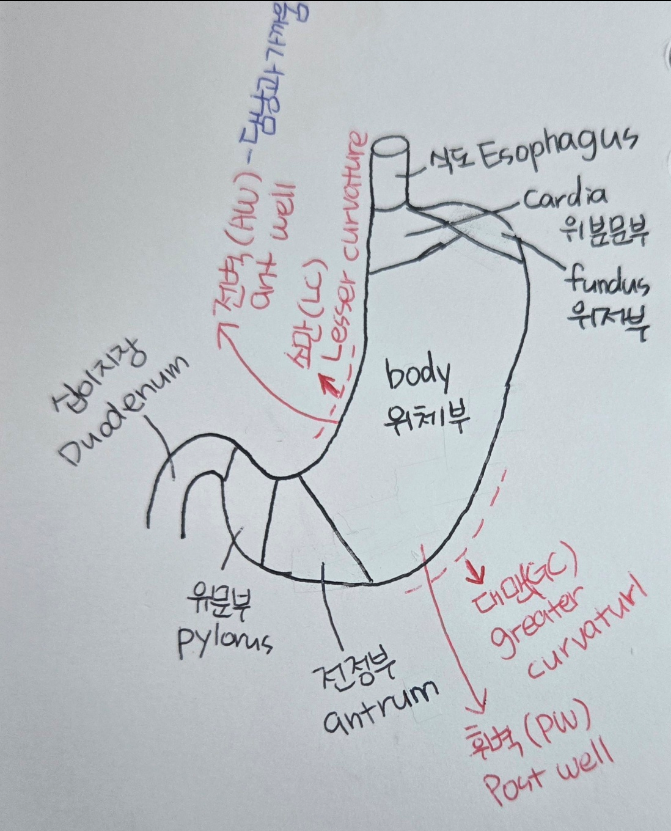 전벽(AW) - 담낭과 가까움
ant well
소만(LC)
Lesser curvature
식도 Esophagus
cardia
위분문부
fundus
위저부
body
위체부
십이지장
Duodenum
위문부
pylorus
전정부
antrum
대만(GC)
greater
curvaturl
후벽(PW)
Post well